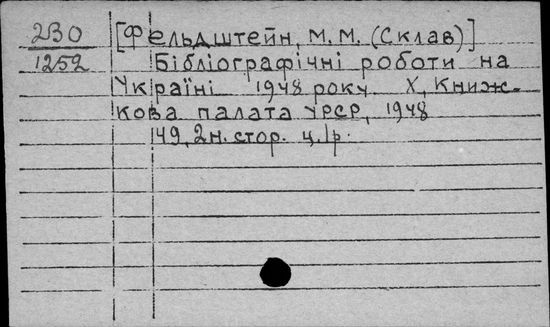 230 [Фельдштейн, М.М. (Склав)]
1252 Бібліографічні роботи на
Україні 1948 року Х, Книж-
кова палата УРСР, 1948
149, 2н. стор. ц. 1р.